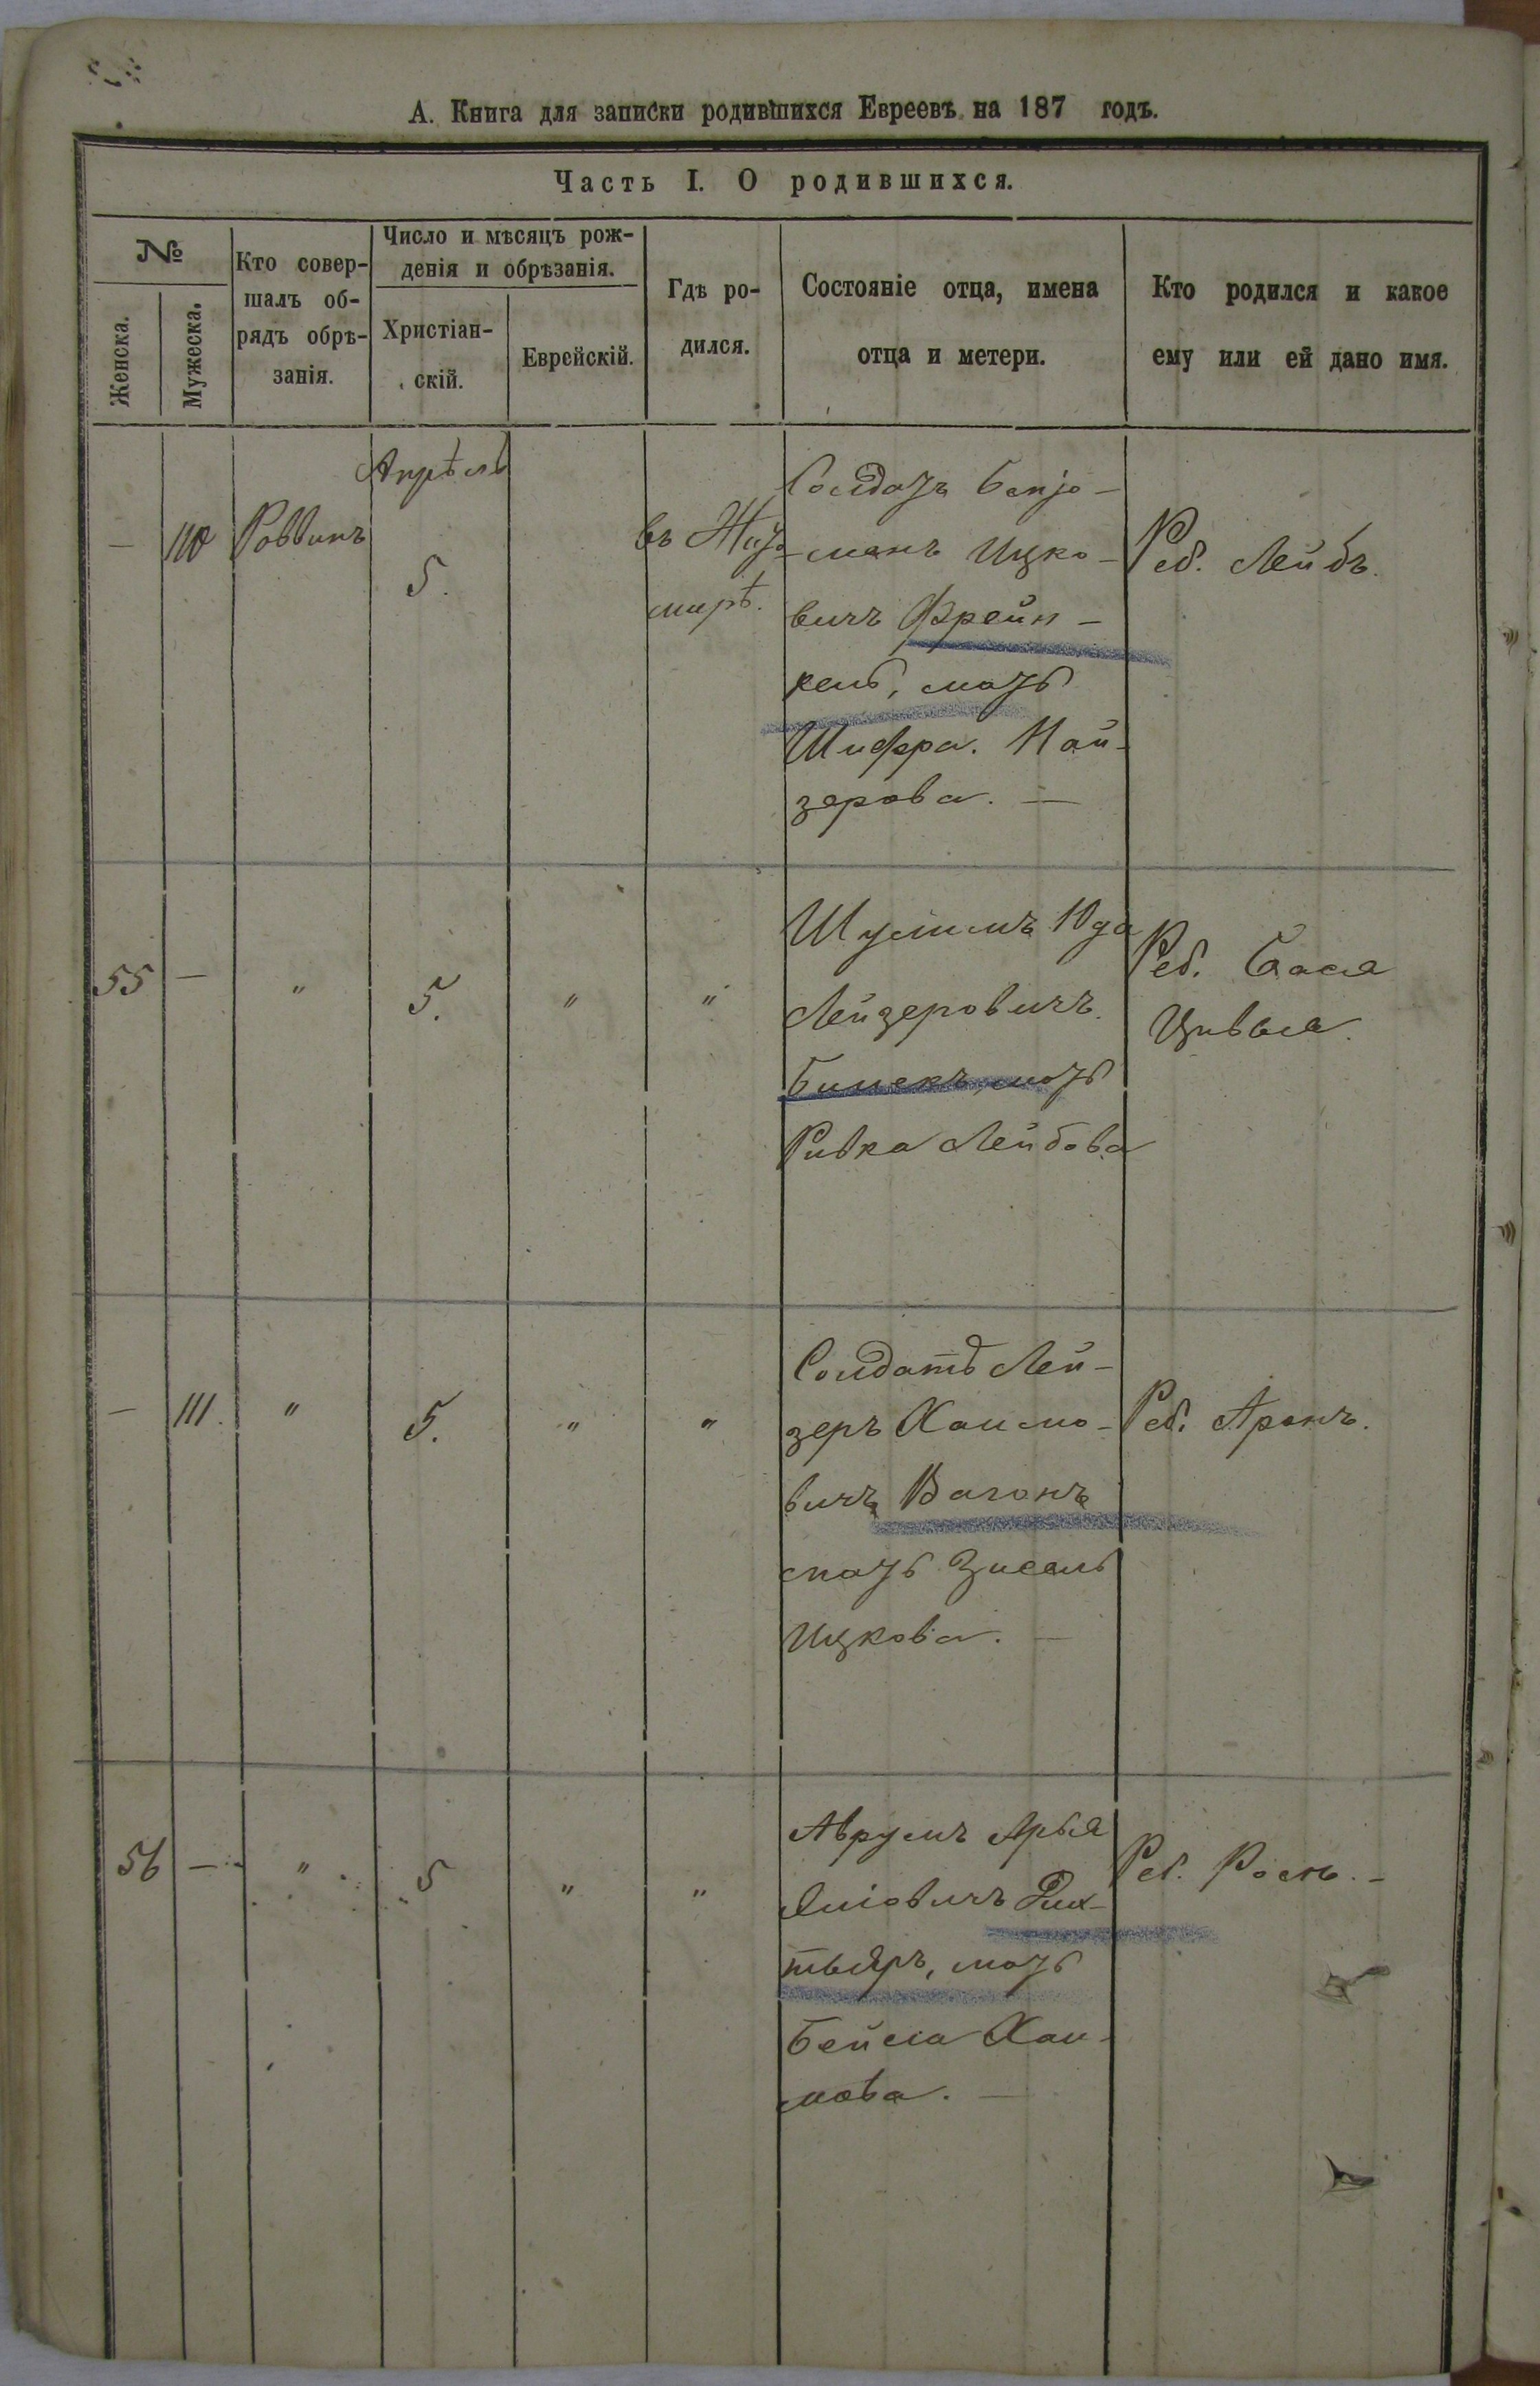 А. Книга для записки родившихся Евреевъ на 187 годъ.
Часть I. О родившихся.
№
Женска.
Мужеска.
Кто совер-
шалъ об-
рядъ обрѣ-
занія.
Число и мѣсяцъ рож-
денія и обрѣзанія.
Христіан-
скій.
Еврейскій.
Гдѣ ро-
дился.
Состояніе отца, имена
отца и метери.
Кто родился и какое
ему или ей дано имя.
—
110
Раввинъ
Апрѣль
5.
въ Жито-
мирѣ.
Солдатъ Беніо-
менъ Ицко-
вичъ Френ-
кель, мать
Шифра. Най-
зерова. —
Реб. Лейбъ.
55
—
"
5.
"
"
Шулимъ Юда
Лейзеровичъ
мать
Ривка Лейбова
Реб. Бася
Цивья.
—
111.
"
5.
"
"
Солдатъ Лей-
зеръ Хаимо-
вичъ Вагонъ
мать Зисель
Ицкова. —
Реб. Аронъ.
56
—
"
5
"
"
Аврумъ Арья
мать
Бейла Хаи-
мова. —
Реб.